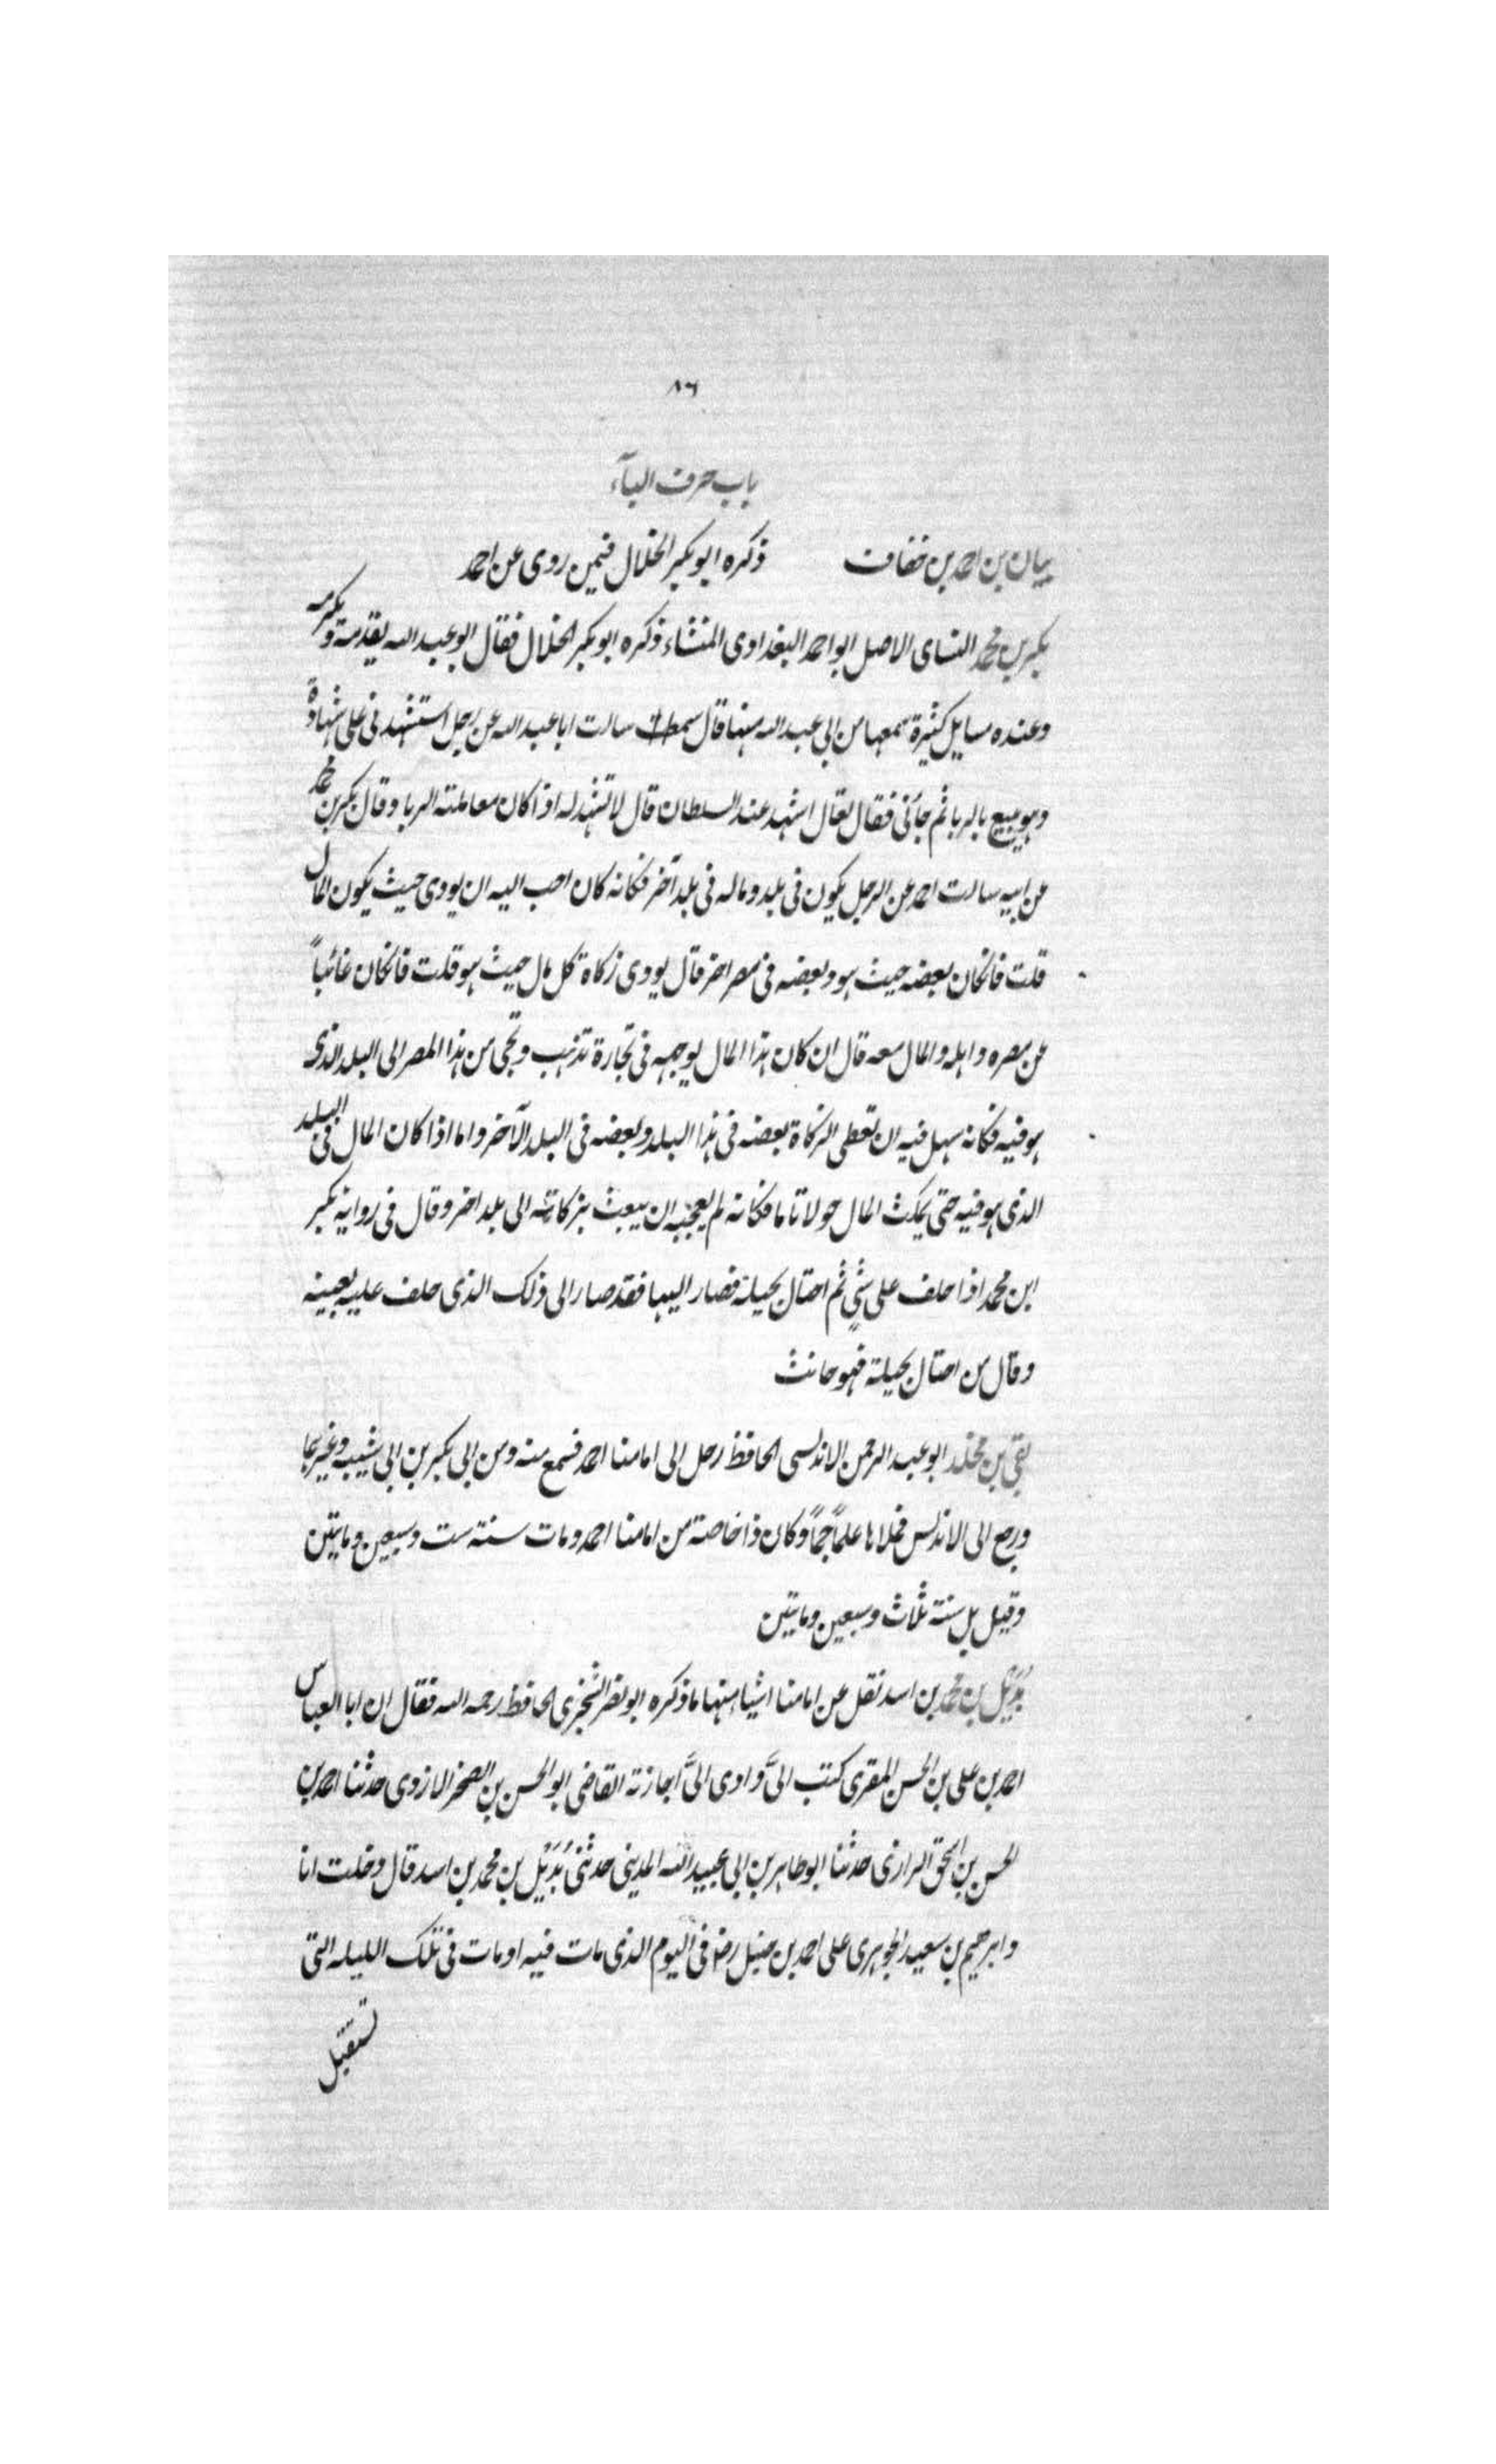 ٨٦
باب حرف الباء
بيان بن احمد بن خفاف ذكره ابو بكر الخلال فيمن روى عن احمد
بكر بن محمد النساى الاصل ابو احمد البغدادى المنشاء ذكره ابو بكر الخلال فقال ابو عبد الله يقدمه ويكرمه
وعنده مسايل كثيرة سمعها من ابى عبد الله منها قال سالت ابا عبد الله عن رجل استشهدنى على شهادة
وهو يبيع بالربا ثم جائنى فقال تعال اشهد عند السلطان قال لا تشهد له اذا كان معاملته الربا وقال بكر بن محمد
عن ابيه سالت احمد عن الرجل يكون فى بلد وماله فى بلد آخر فكانه كان احب اليه ان يودى حيث يكون المال
قلت فانكان بعضه حيث هو وبعضه فى مصر اخر قال يودى زكاة كل مال حيث هو قلت فانكان غائباً
عن مصره واهله والمال معه قال ان كان هذا المال يوجهه فى تجارة تذهب وتجى من هذا المصر الى البلد الذى
هو فيه فكانه سهل فيه ان تعطى الزكاة بعضه فى هذا البلد وبعضه فى البلد الآخر واما اذا كان المال فى البلد
الذى هو فيه حتى يمكث المال حولا تاما فكانه لم يعجبه ان يبعث بزكاته الى بلد اخر وقال فى رواية بكر
ابن محمد اذا حلف على شىٍ ثم احتال بحيلة فصار اليها فقد صار الى ذلك الذى حلف عليه بعينه
وقال من احتال بحيلة فهو حانث
بقى بن مخلد ابو عبد الرحمن الاندلسى الحافظ رحل الى امامنا احمد فسمع منه ومن ابى بكر بن ابى شيبه وغيرهما
ورجع الى الاندلس فملاها علماً جماً وكان ذا خاصة من امامنا احمد ومات سنة ست وسبعين ومايتين
وقيل بل سنة ثلاث وسبعين ومايتين
بُدَيْل بن محمد بن اسد نقل عن امامنا اشياء منها ما ذكره ابو نصر السجزى الحافظ رحمه الله فقال ان ابا العباس
احمد بن على بن الحسن المقرى كتب الىَّ وادى الىَّ اجازته القاضى ابو الحسن بن الصخر الازدى حدثنا احمد بن
الحسن بن اسحق الرازى حدثنا ابو طاهر بن ابى عبيد الله المدينى حدثنى بُدَيْل بن محمد بن اسد قال دخلت انا
وابرهيم بن سعيد الجوهرى على احمد بن حنبل رضـ فى اليوم الذى مات فيه او مات فى تلك الليله التى
تستقبل